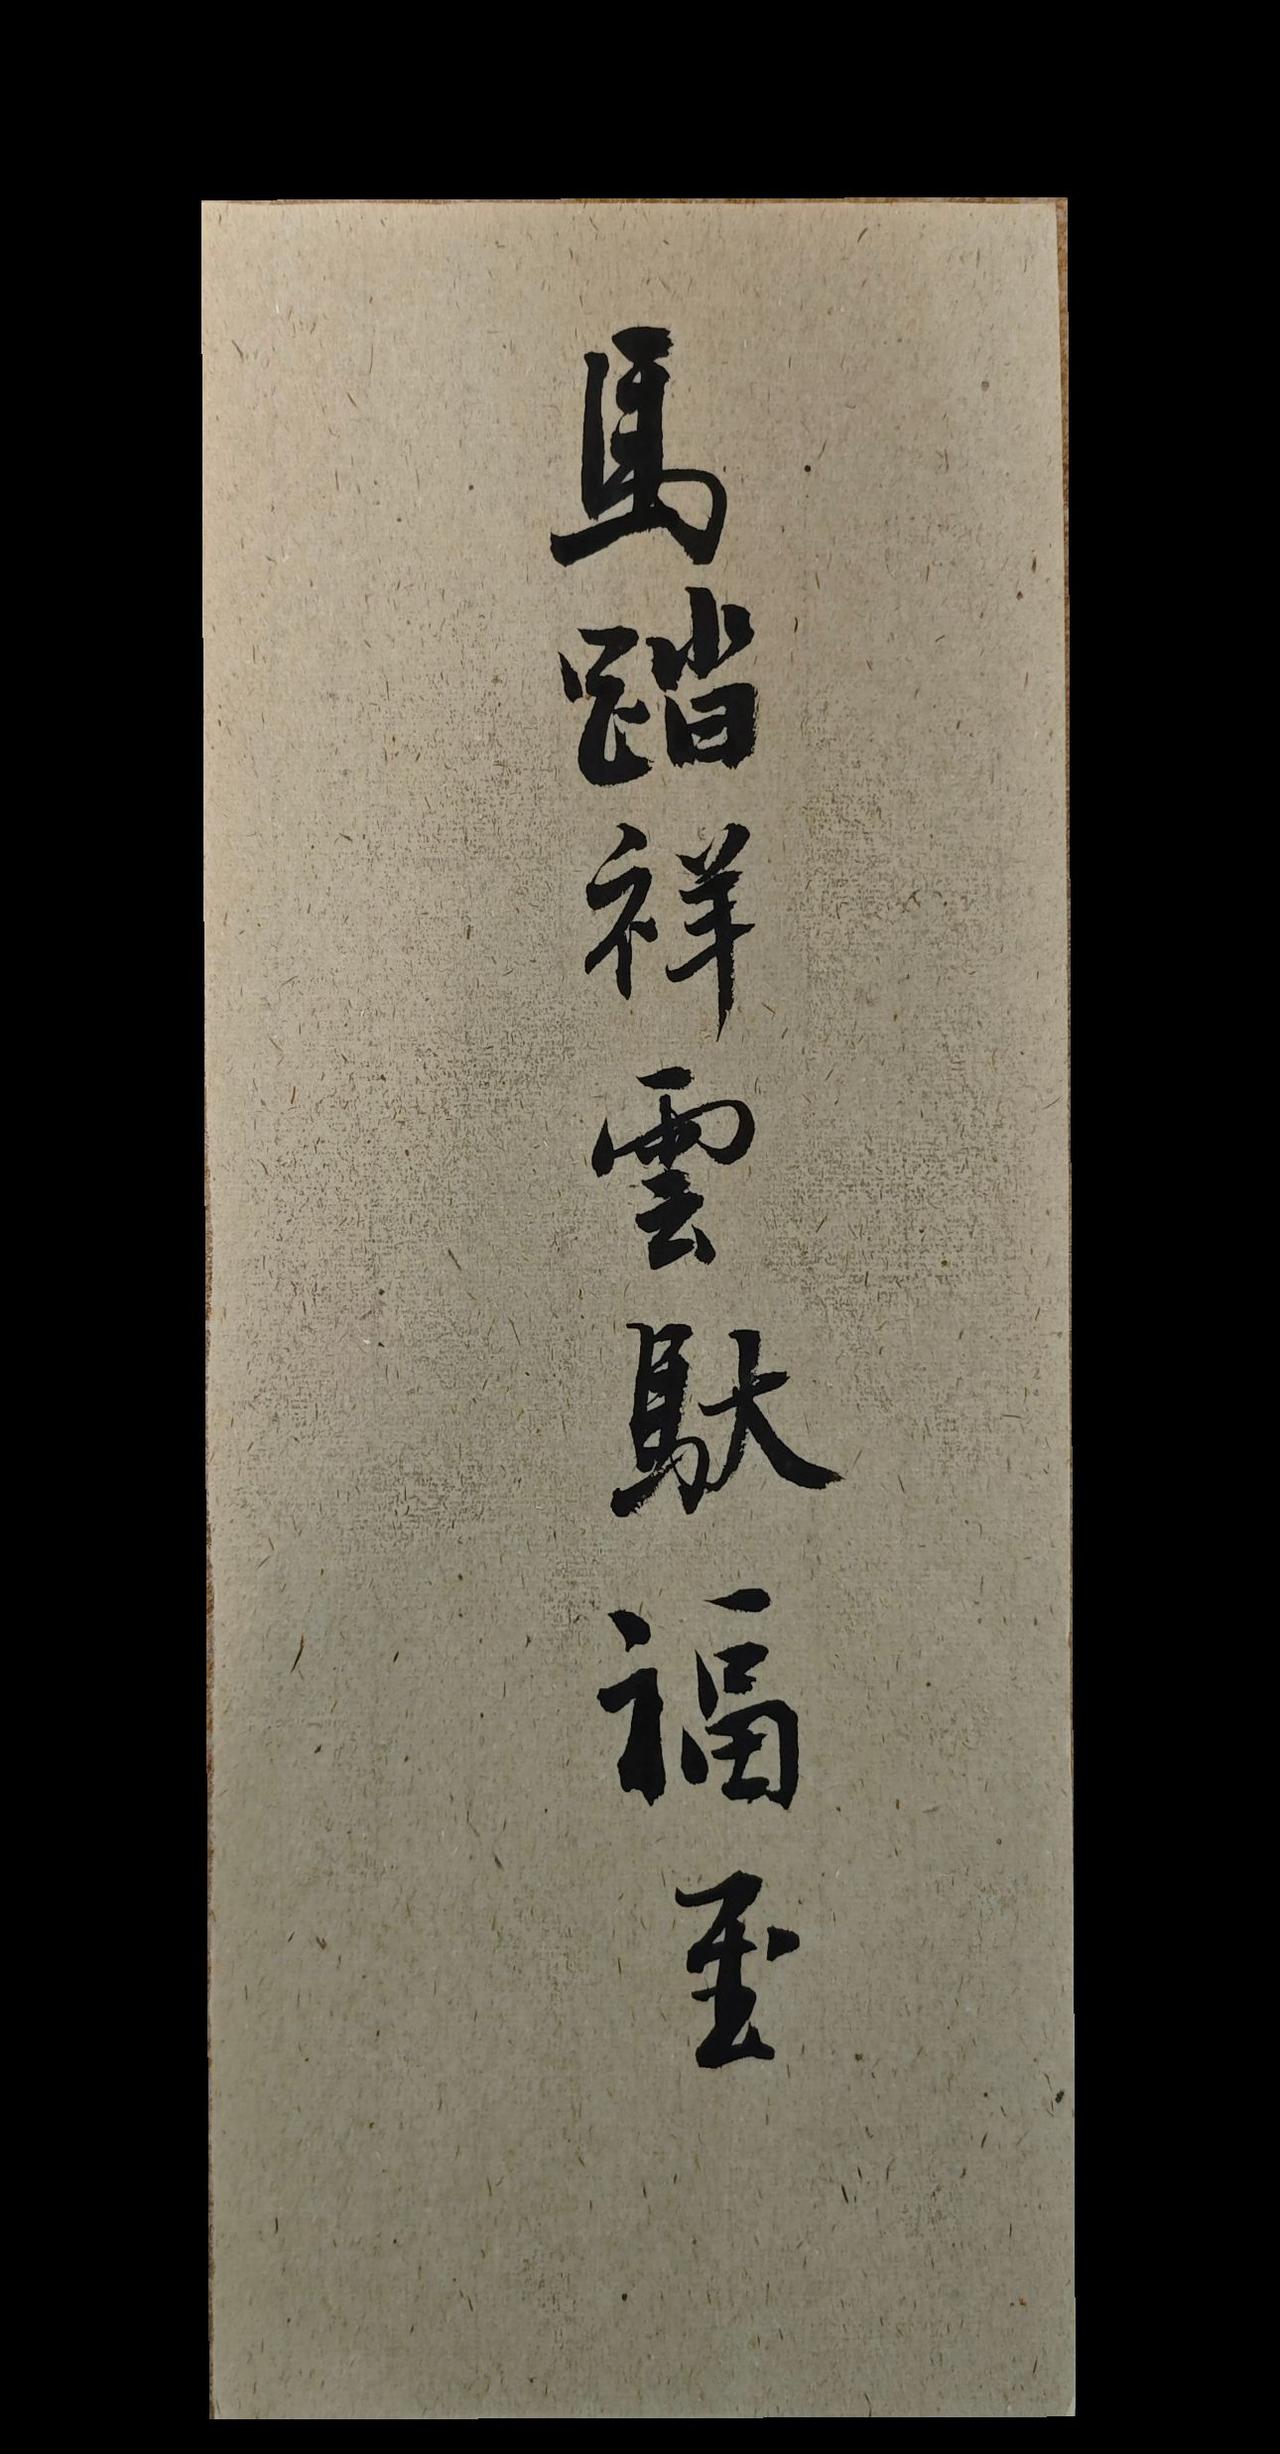 馬踏祥雲馱福至